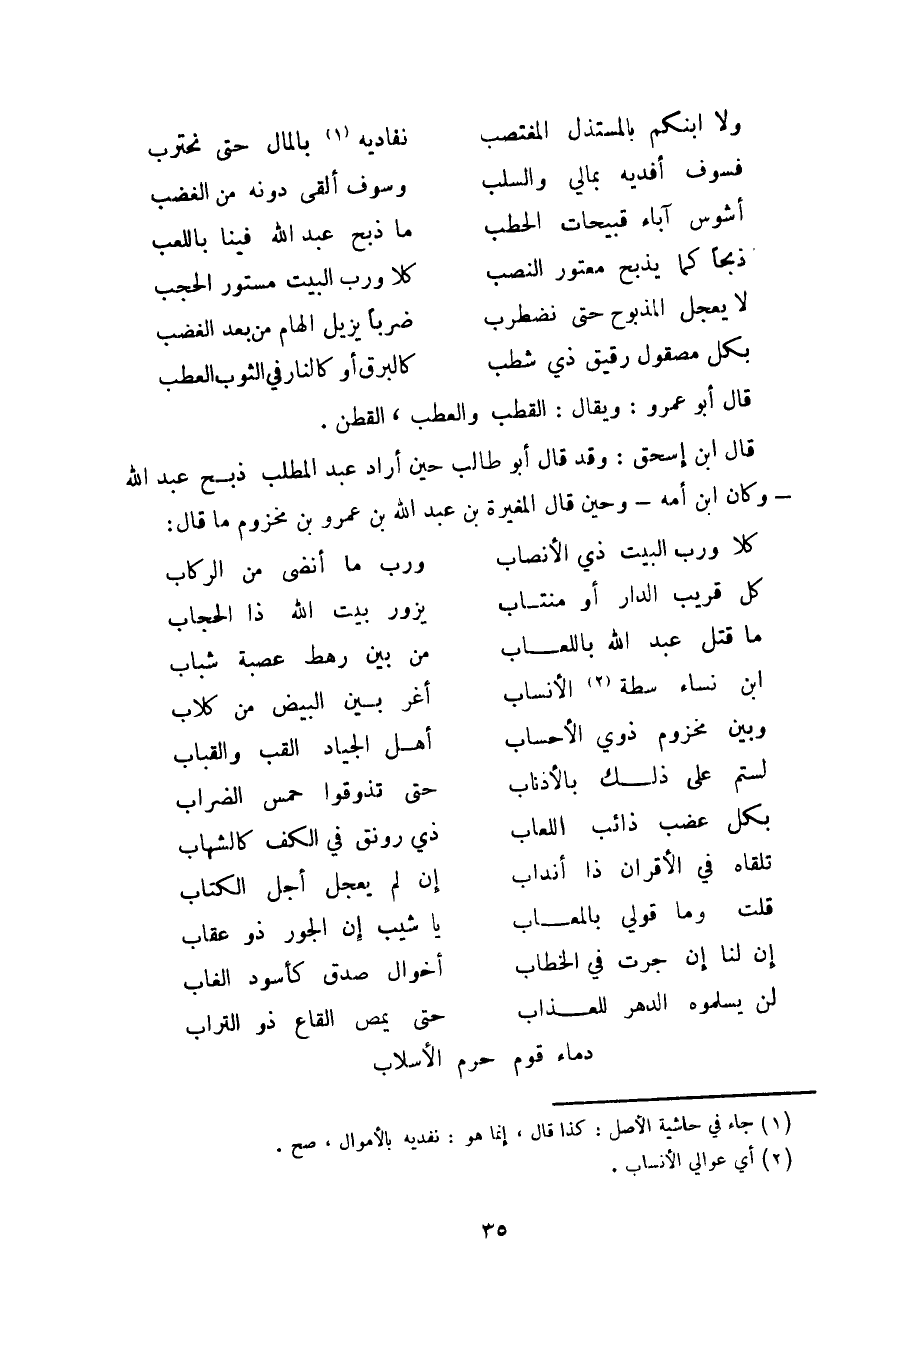 ولا ابنكم بالمستذل المغتصب نفاديه (١) بالمال حتى نحترب
فسوف أفديه بمالي والسلب وسوف ألقى دونه من الغضب
أشوس آباء قبيحات الحطب ما ذبح عبد الله فينا باللعب
ذبحاً كما يذبح معتور النصب كلا ورب البيت مستور الحجب
لا يعجل المذبوح حتى نضطرب ضرباً يزيل الهام من بعد الغضب
بكل مصقول رقيق ذي شطب كالبرق أو كالنار في الثوب العطب
قال أبو عمرو : ويقال : القطب والعطب ، القطن .
قال ابن إسحق : وقد قال أبو طالب حين أراد عبد المطلب ذبـح عبد الله
– وكان ابن أمه – وحين قال المغيرة بن عبد الله بن عمرو بن مخزوم ما قال:
كلا ورب البيت ذي الأنصاب ورب ما أنضى من الركاب
كل قريب الدار أو منتـاب يزور بيت الله ذا الحجاب
ما قتل عبد الله باللعـــاب من بين رهط عصبة شباب
ابن نساء سطة (٢) الأنساب أغر بـين البيض من كلاب
وبين مخزوم ذوي الأحساب أهـل الجياد القب والقباب
لستم على ذلـــك بالأذناب حتى تذوقوا حمس الضراب
بكل عضب ذائب اللعاب ذي رونق في الكف كالشهاب
تلقاه في الأقران ذا أنداب إن لم يعجل أجل الكتاب
قلت وما قولي بالمعـــاب يا شيب إن الجور ذو عقاب
إن لنا إن جرت في الخطاب أخوال صدق كأسود الغاب
لن يسلموه الدهر للعـــذاب حتى يمص القاع ذو التراب
دماء قوم حرم الأسلاب
(١) جاء في حاشية الأصل : كذا قال ، إنما هو : نفديه بالأموال ، صح .
(٢) أي عوالي الأنساب .
٣٥